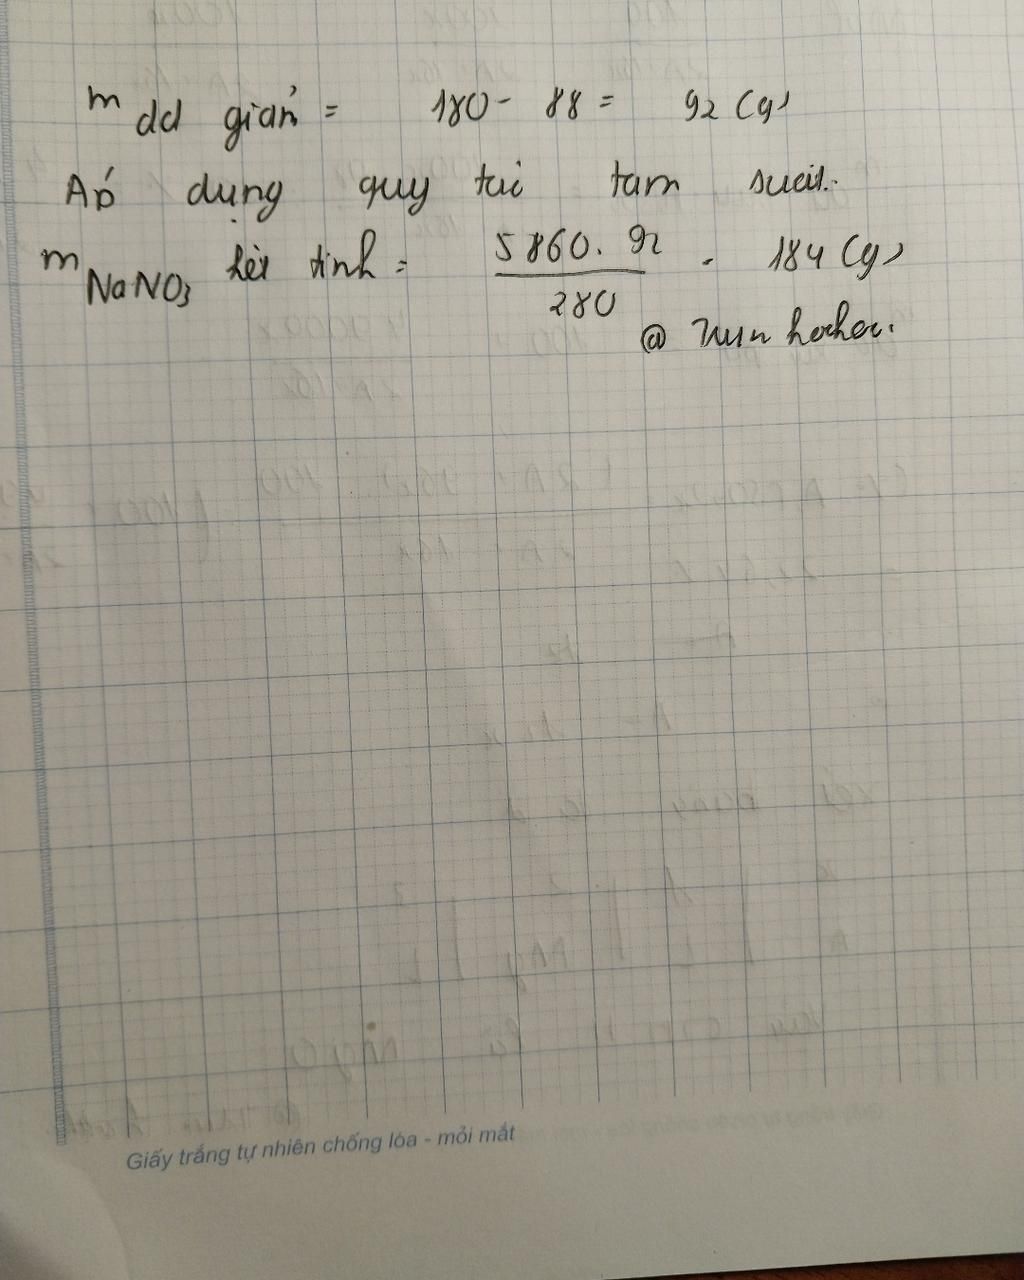 m dd giản = 180 - 88 = 92 (g)
Áp dụng quy tắc tam suất.
m NaNO3 kết tinh = 5860. 92 / 280 = 184 (g)
@
Giấy trắng tự nhiên chống lóa - mỏi mắt